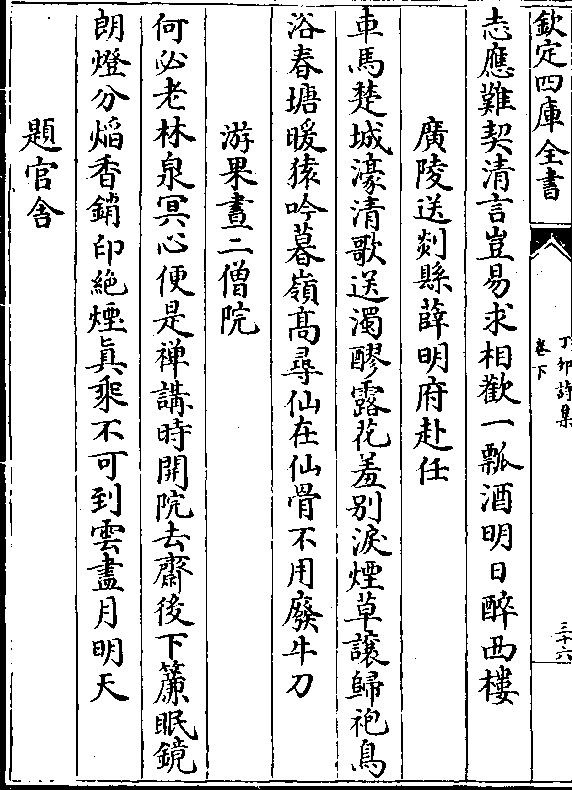 欽定四庫全書
丁卯詩集
卷下
三十六
志應難契清言豈易求相歡一瓢酒明日醉西樓
廣陵送剡縣薛明府赴任
車馬楚城濠清歌送濁醪露花羞别淚煙草讓歸袍鳥
浴春塘暖猿吟暮嶺髙尋仙在仙骨不用廢牛刀
游果晝二僧院
何必老林泉冥心便是禅講時開院去齋後下簾眠鏡
朗燈分焰香銷印絶煙眞乘不可到雲盡月明天
題官舍